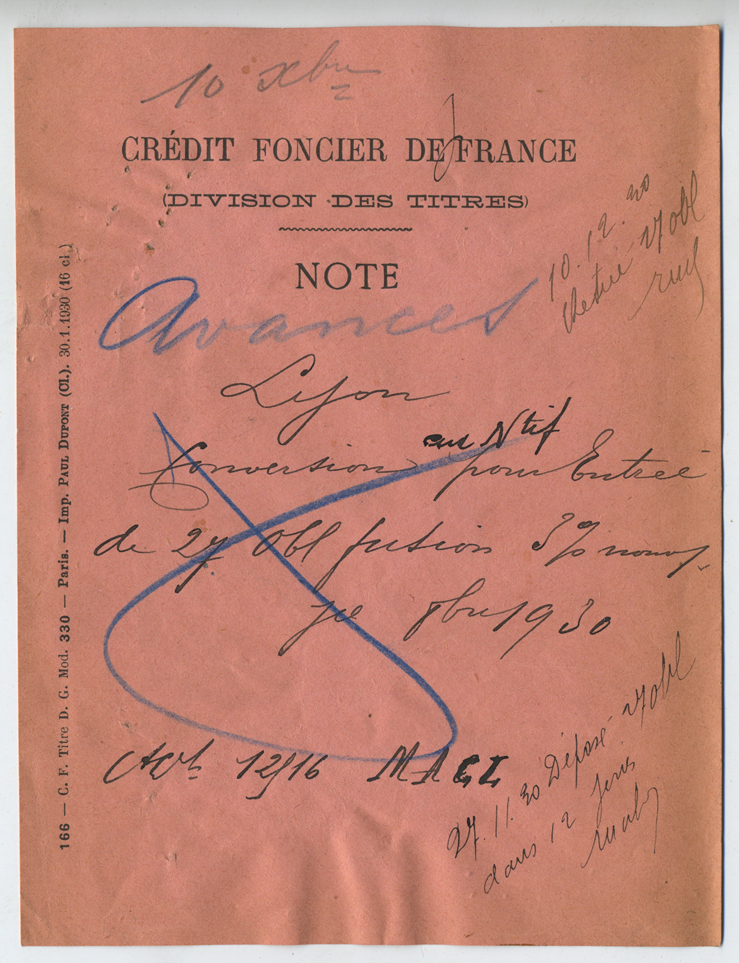 10 Xbre
CRÉDIT FONCIER DE FRANCE
(DIVISION DES TITRES)
NOTE
10.12.30
Obl
Avances
Lyon
Conversion au Ntif pour Entrée
de 27 Obl fusion 3% nouv
jce 8bre 1930
12516
27.11.30 Déposé Obl
dans 12 jours
166 — C. F. Titre D. G. Mod. 330 — Paris. — Imp. PAUL DUPONT (Cl.). 30.1.1930 (16 cl.)